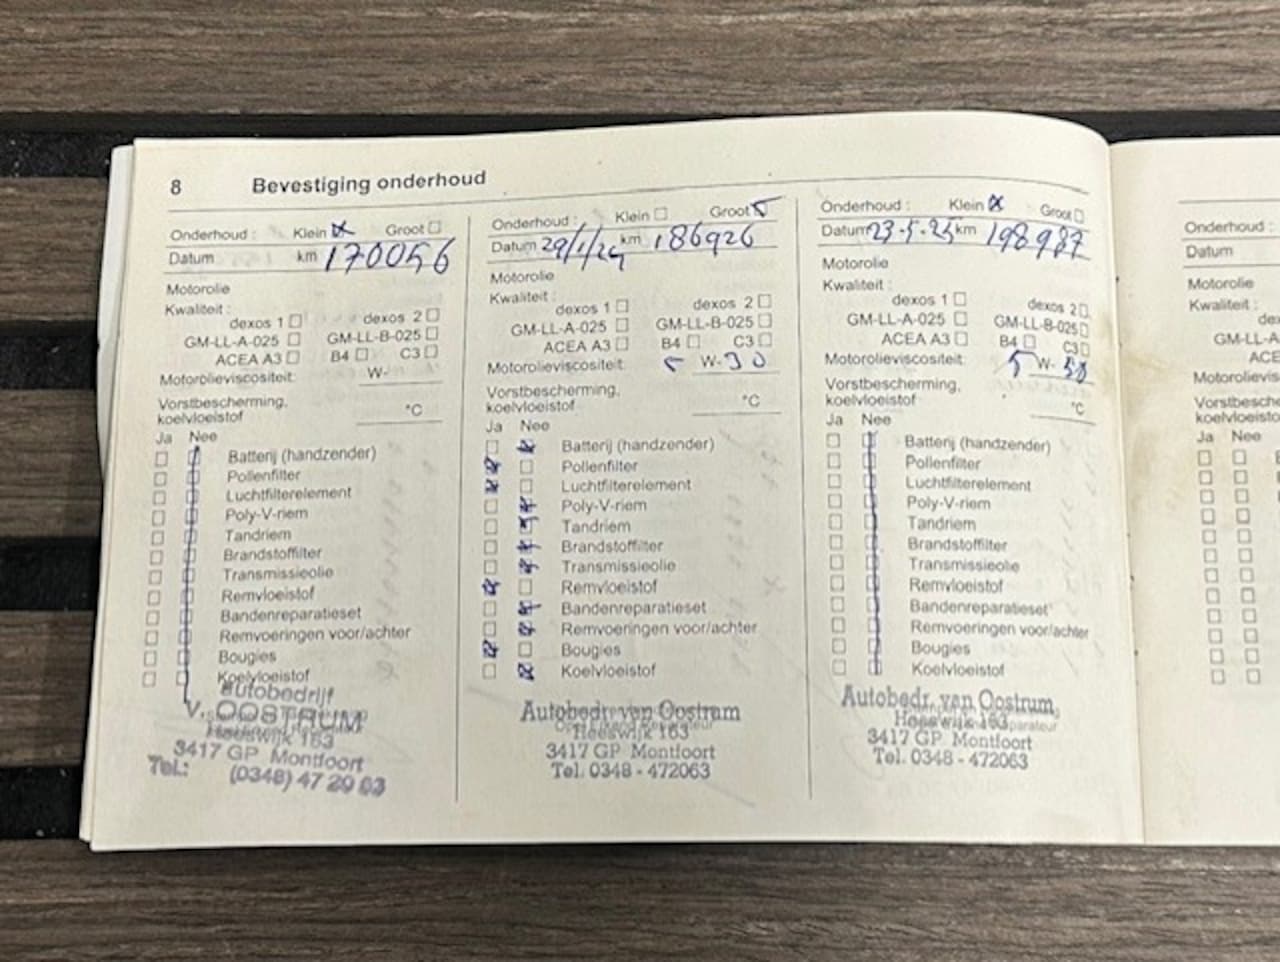 8 Bevestiging onderhoud
Onderhoud : Klein ☒ Groot ☐
Datum km 170056
Motorolie
Kwaliteit :
dexos 1 ☐ dexos 2 ☐
GM-LL-A-025 ☐ GM-LL-B-025 ☐
ACEA A3 ☐ B4 ☐ C3 ☐
Motorolieviscositeit: W-
Vorstbescherming,
koelvloeistof °C
Ja Nee
Batterij (handzender)
Pollenfilter
Luchtfilterelement
Poly-V-riem
Tandriem
Brandstoffilter
Transmissieolie
Remvloeistof
Bandenreparatieset
Remvoeringen voor/achter
Bougies
Koelvloeistof
Autobedrijf
v. OOSTRUM
Heeswijk 163
3417 GP Montfoort
Tel.: (0348) 47 20 63
Onderhoud : Klein ☐ Groot ☒
Datum 29/1/24 km 186926
Motorolie
Kwaliteit :
dexos 1 ☐ dexos 2 ☐
GM-LL-A-025 ☐ GM-LL-B-025 ☐
ACEA A3 ☐ B4 ☐ C3 ☐
Motorolieviscositeit: 5 W-30
Vorstbescherming,
koelvloeistof °C
Ja Nee
☐ ☒ Batterij (handzender)
☒ ☐ Pollenfilter
☒ ☐ Luchtfilterelement
☐ ☒ Poly-V-riem
☐ ☒ Tandriem
☐ ☒ Brandstoffilter
☐ ☒ Transmissieolie
☒ ☐ Remvloeistof
☐ ☒ Bandenreparatieset
☐ ☒ Remvoeringen voor/achter
☒ ☐ Bougies
☐ ☒ Koelvloeistof
Autobedr. van Oostrum
Heeswijk 163
3417 GP Montfoort
Tel. 0348 - 472063
Onderhoud : Klein ☒ Groot ☐
Datum 23-5-25 km 198987
Motorolie
Kwaliteit :
dexos 1 ☐ dexos 2 ☐
GM-LL-A-025 ☐ GM-LL-B-025 ☐
ACEA A3 ☐ B4 ☐ C3 ☐
Motorolieviscositeit: 5 W-30
Vorstbescherming,
koelvloeistof °C
Ja Nee
Batterij (handzender)
Pollenfilter
Luchtfilterelement
Poly-V-riem
Tandriem
Brandstoffilter
Transmissieolie
Remvloeistof
Bandenreparatieset
Remvoeringen voor/achter
Bougies
Koelvloeistof
Autobedr. van Oostrum
Heeswijk 163
3417 GP Montfoort
Tel. 0348 - 472063
Onderhoud :
Datum
Motorolie
Kwaliteit :
GM-LL-A
ACE
Motorolievis
Vorstbesche
koelvloeisto
Ja Nee